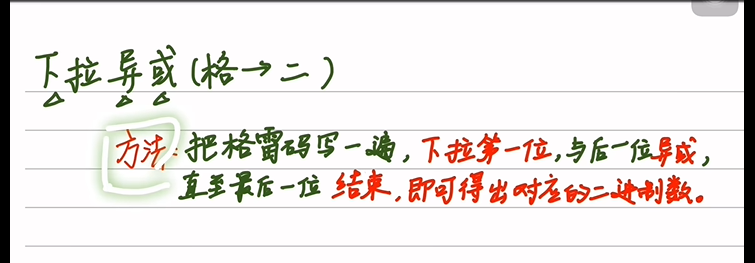 下拉异或(格→二)
方法:把格雷码写一遍,下拉第一位,与后一位异或,
直至最后一位结束,即可得出对应的二进制数。